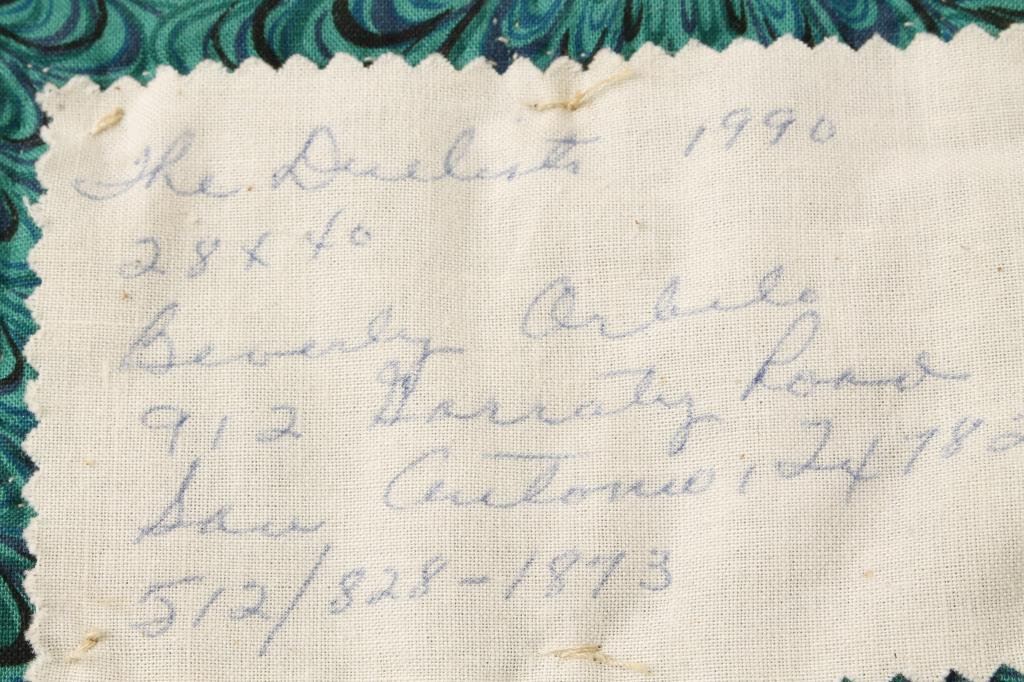 The Duelists 1990
28 x 40
Beverly Orbelo
912 Garraty Road
San Antonio, Tx 782
512/828-1873